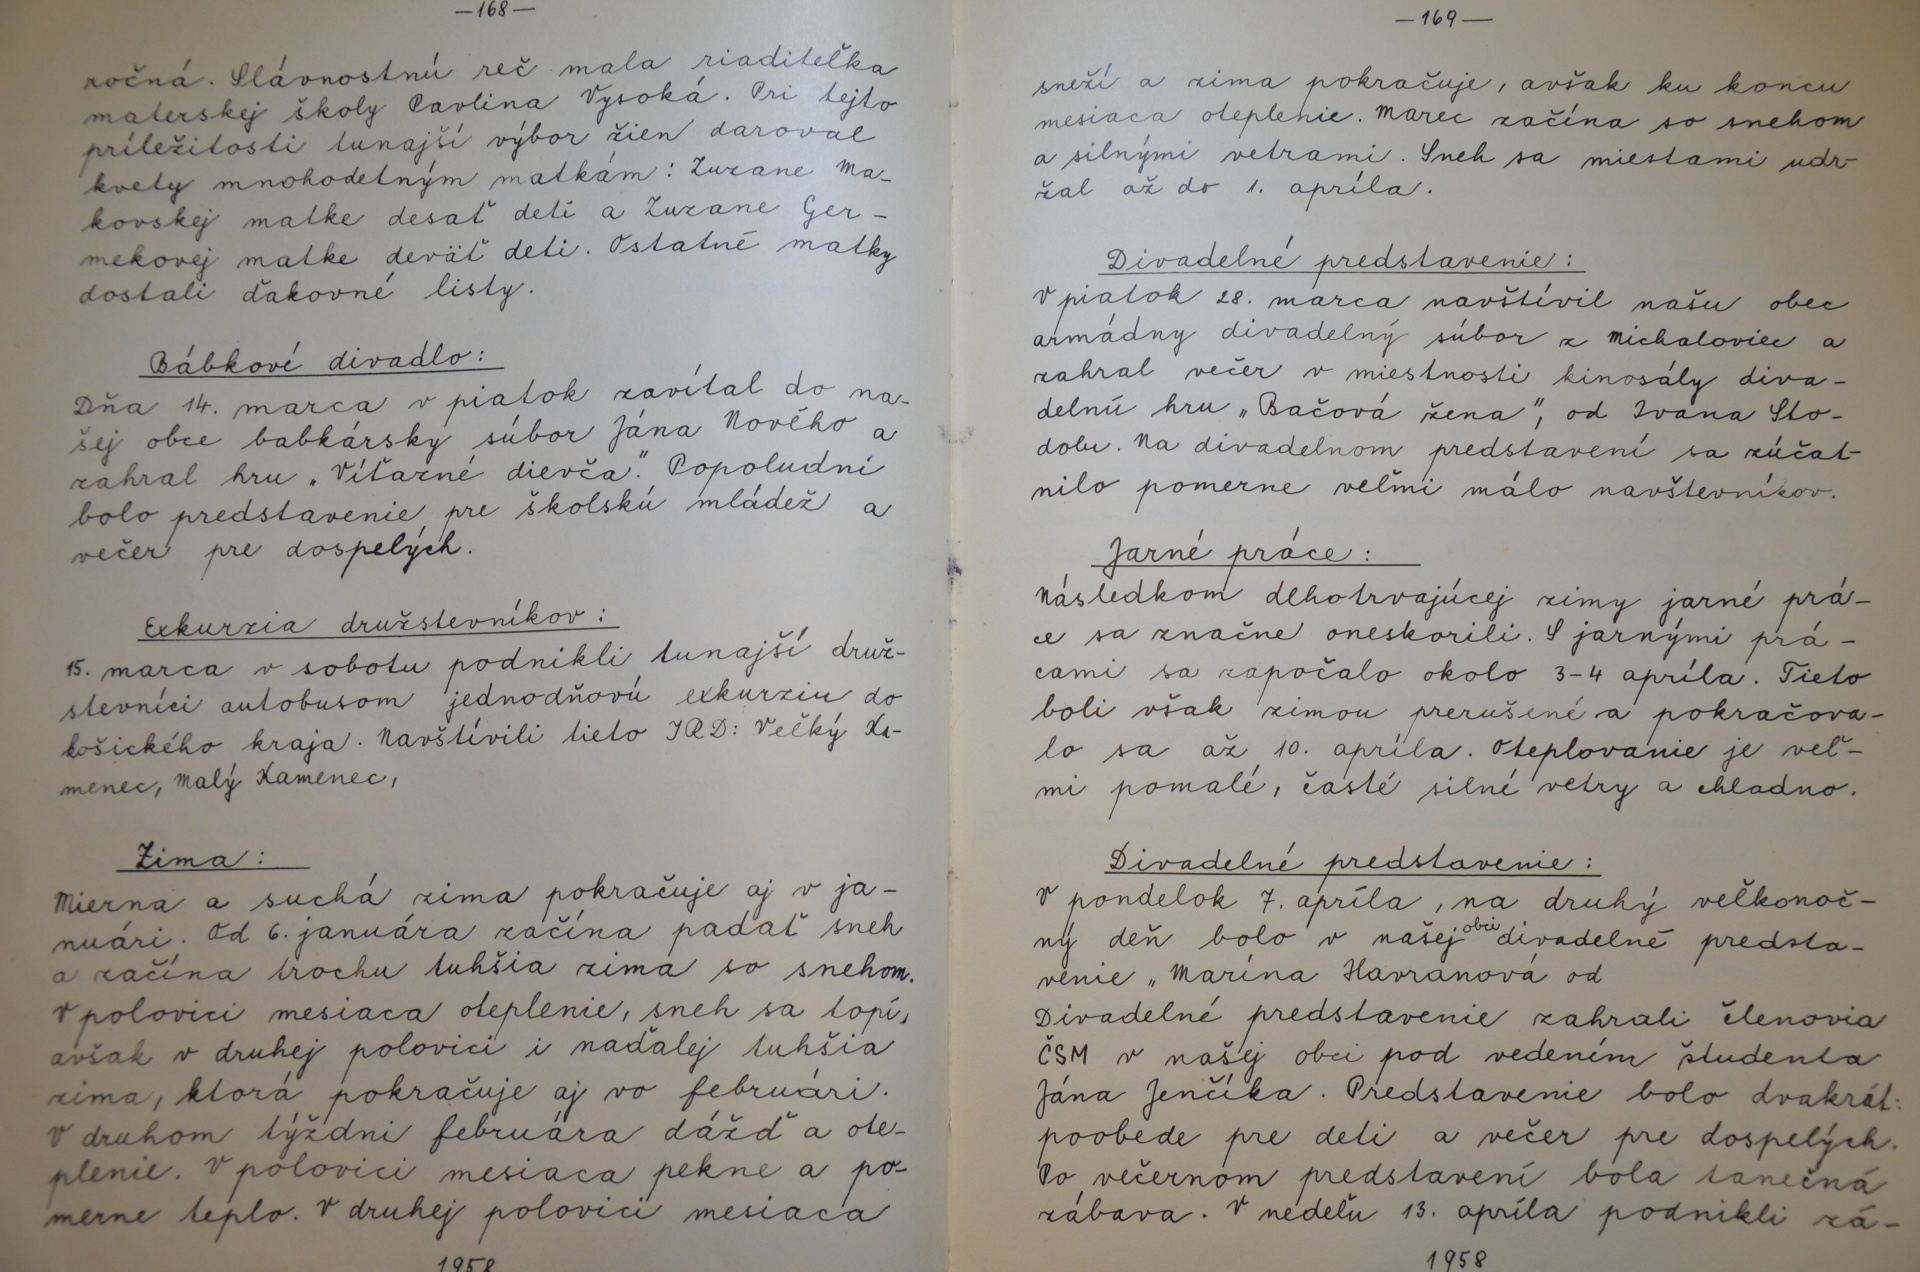 —168—
ročná. Slávnostnú reč mala riaditeľka
materskej školy Pavlina Vysoká. Pri tejto
príležitosti tunajší výbor žien daroval
kvety mnohodetným matkám: Zuzane Ma-
kovskej matke desať detí a Zuzane Ger-
mekovej matke deväť deti. Ostatné matky
dostali ďakovné listy.
Bábkové divadlo:
Dňa 14. marca v piatok zavítal do na-
šej obce babkársky súbor Jána Nového a
zahral hru „Víťazné dievča". Popoludní
bolo predstavenie pre školskú mládež a
večer pre dospelých.
Exkurzia družstevníkov:
15. marca v sobotu podnikli tunajší druž-
stevníci autobusom jednodňovú exkurziu do
košického kraja. Navštívili tieto JRD: Veľký Ka-
menec, Malý Kamenec,
Zima:
Mierna a suchá zima pokračuje aj v ja-
nuári. Od 6. januára začína padať sneh
a začína trochu tuhšia zima so snehom.
V polovici mesiaca oteplenie, sneh sa topí,
avšak v druhej polovici i naďalej tuhšia
zima, ktorá pokračuje aj vo februári.
V druhom týždni februára dážď a ote-
plenie. V polovici mesiaca pekne a po-
merne teplo. V druhej polovici mesiaca
1958
—169—
sneží a zima pokračuje, avšak ku koncu
mesiaca oteplenie. Marec začína so snehom
a silnými vetrami. Sneh sa miestami udr-
žal až do 1. apríla.
Divadelné predstavenie:
V piatok 28. marca navštívil našu obec
armádny divadelný súbor z Michaloviec a
zahral večer v miestnosti kinosály diva-
delnú hru „Bačová žena", od Ivana Sto-
dolu. Na divadelnom predstavení sa zúčat-
nilo pomerne veľmi málo navštevníkov.
Jarné práce:
Následkom dlhotrvajúcej zimy jarné prá-
ce sa značne oneskorili. S jarnými prá-
cami sa započalo okolo 3-4 apríla. Tieto
boli však zimou prerušené a pokračova-
lo sa až 10. apríla. Oteplovanie je veľ-
mi pomalé, časté silné vetry a chladno.
Divadelné predstavenie:
V pondelok 7. apríla, na druhý veľkonoč-
ný deň bolo v našej obci divadelné predsta-
venie „Marína Havranová od
Divadelné predstavenie zahrali členovia
ČSM v našej obci pod vedením študenta
Jána Jenčíka. Predstavenie bolo dvakrát:
poobede pre deti a večer pre dospelých.
Po večernom predstavení bola tanečná
zábava. V nedeľu 13. apríla podnikli zá-
1958